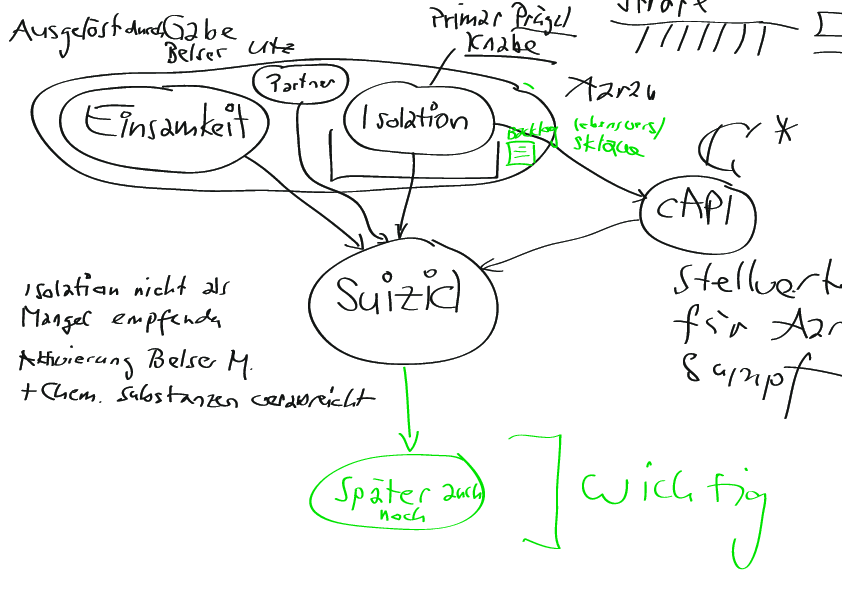 Ausgelöst durch Gabe
Belser Utz
Primär Prügel
Knabe
Partner
Einsamkeit
Isolation
Backlog
lebensvers/
Sklave
C*
cAPI
Suizid
Isolation nicht als
Mangel empfunden
Aktivierung Belser M.
+ Chem. Substanzen verabreicht
Stellvert
für Azr
Später auch
noch
wichtig